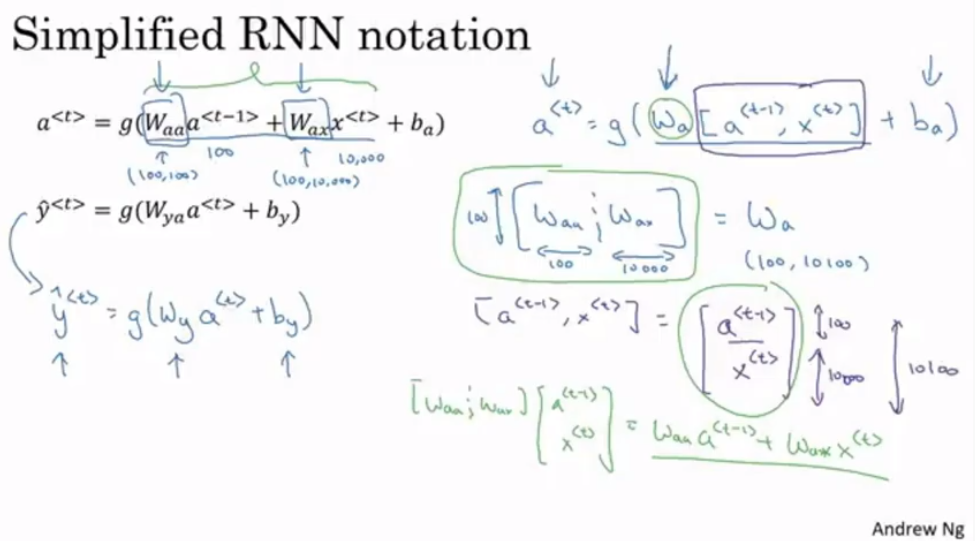 Simplified RNN notation
a<t> = g(Waaa<t−1> + Waxx<t> + ba)
(100,100) 100 (100,10,000) 10,000
ŷ<t> = g(Wyaa<t> + by)
ŷ<t> = g(Wy a<t> + by)
a<t> = g(Wa [a<t-1>, x<t>] + ba)
100 [Waa ; Wax] = Wa
100 10000 (100, 10100)
[a<t-1>, x<t>] = [a<t-1> x<t>] 100 10000 10100
[Waa ; Wax] [a<t-1> x<t>] = Waa a<t-1> + Wax x<t>
Andrew Ng